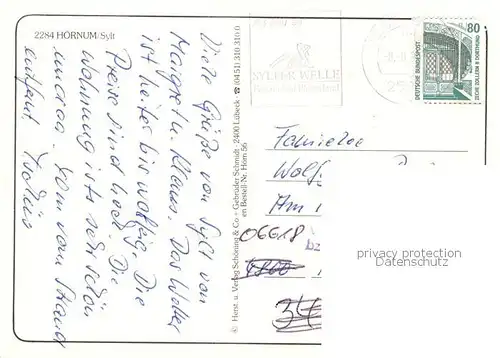 2284 HÖRNUM/Sylt
Viele Grüße von Sylt von
Margret u. Klaus. Das Wetter
ist heiter bis wolkig. Die
Preise sind hoch. Die
Wohnung ist sehr schön
und ca. 50m vom Strand
entfernt.
© Herst. u. Verlag Schöning & Co + Gebrüder Schmidt, 2400 Lübeck ☎ (0451) 310 310
Bestell-Nr. Hörn 56
SYLTER WELLE
80
DEUTSCHE BUNDESPOST
ZECHE ZOLLERN II DORTMUND
Familie
Wolf
Am
06618
privacy protection
Datenschutz